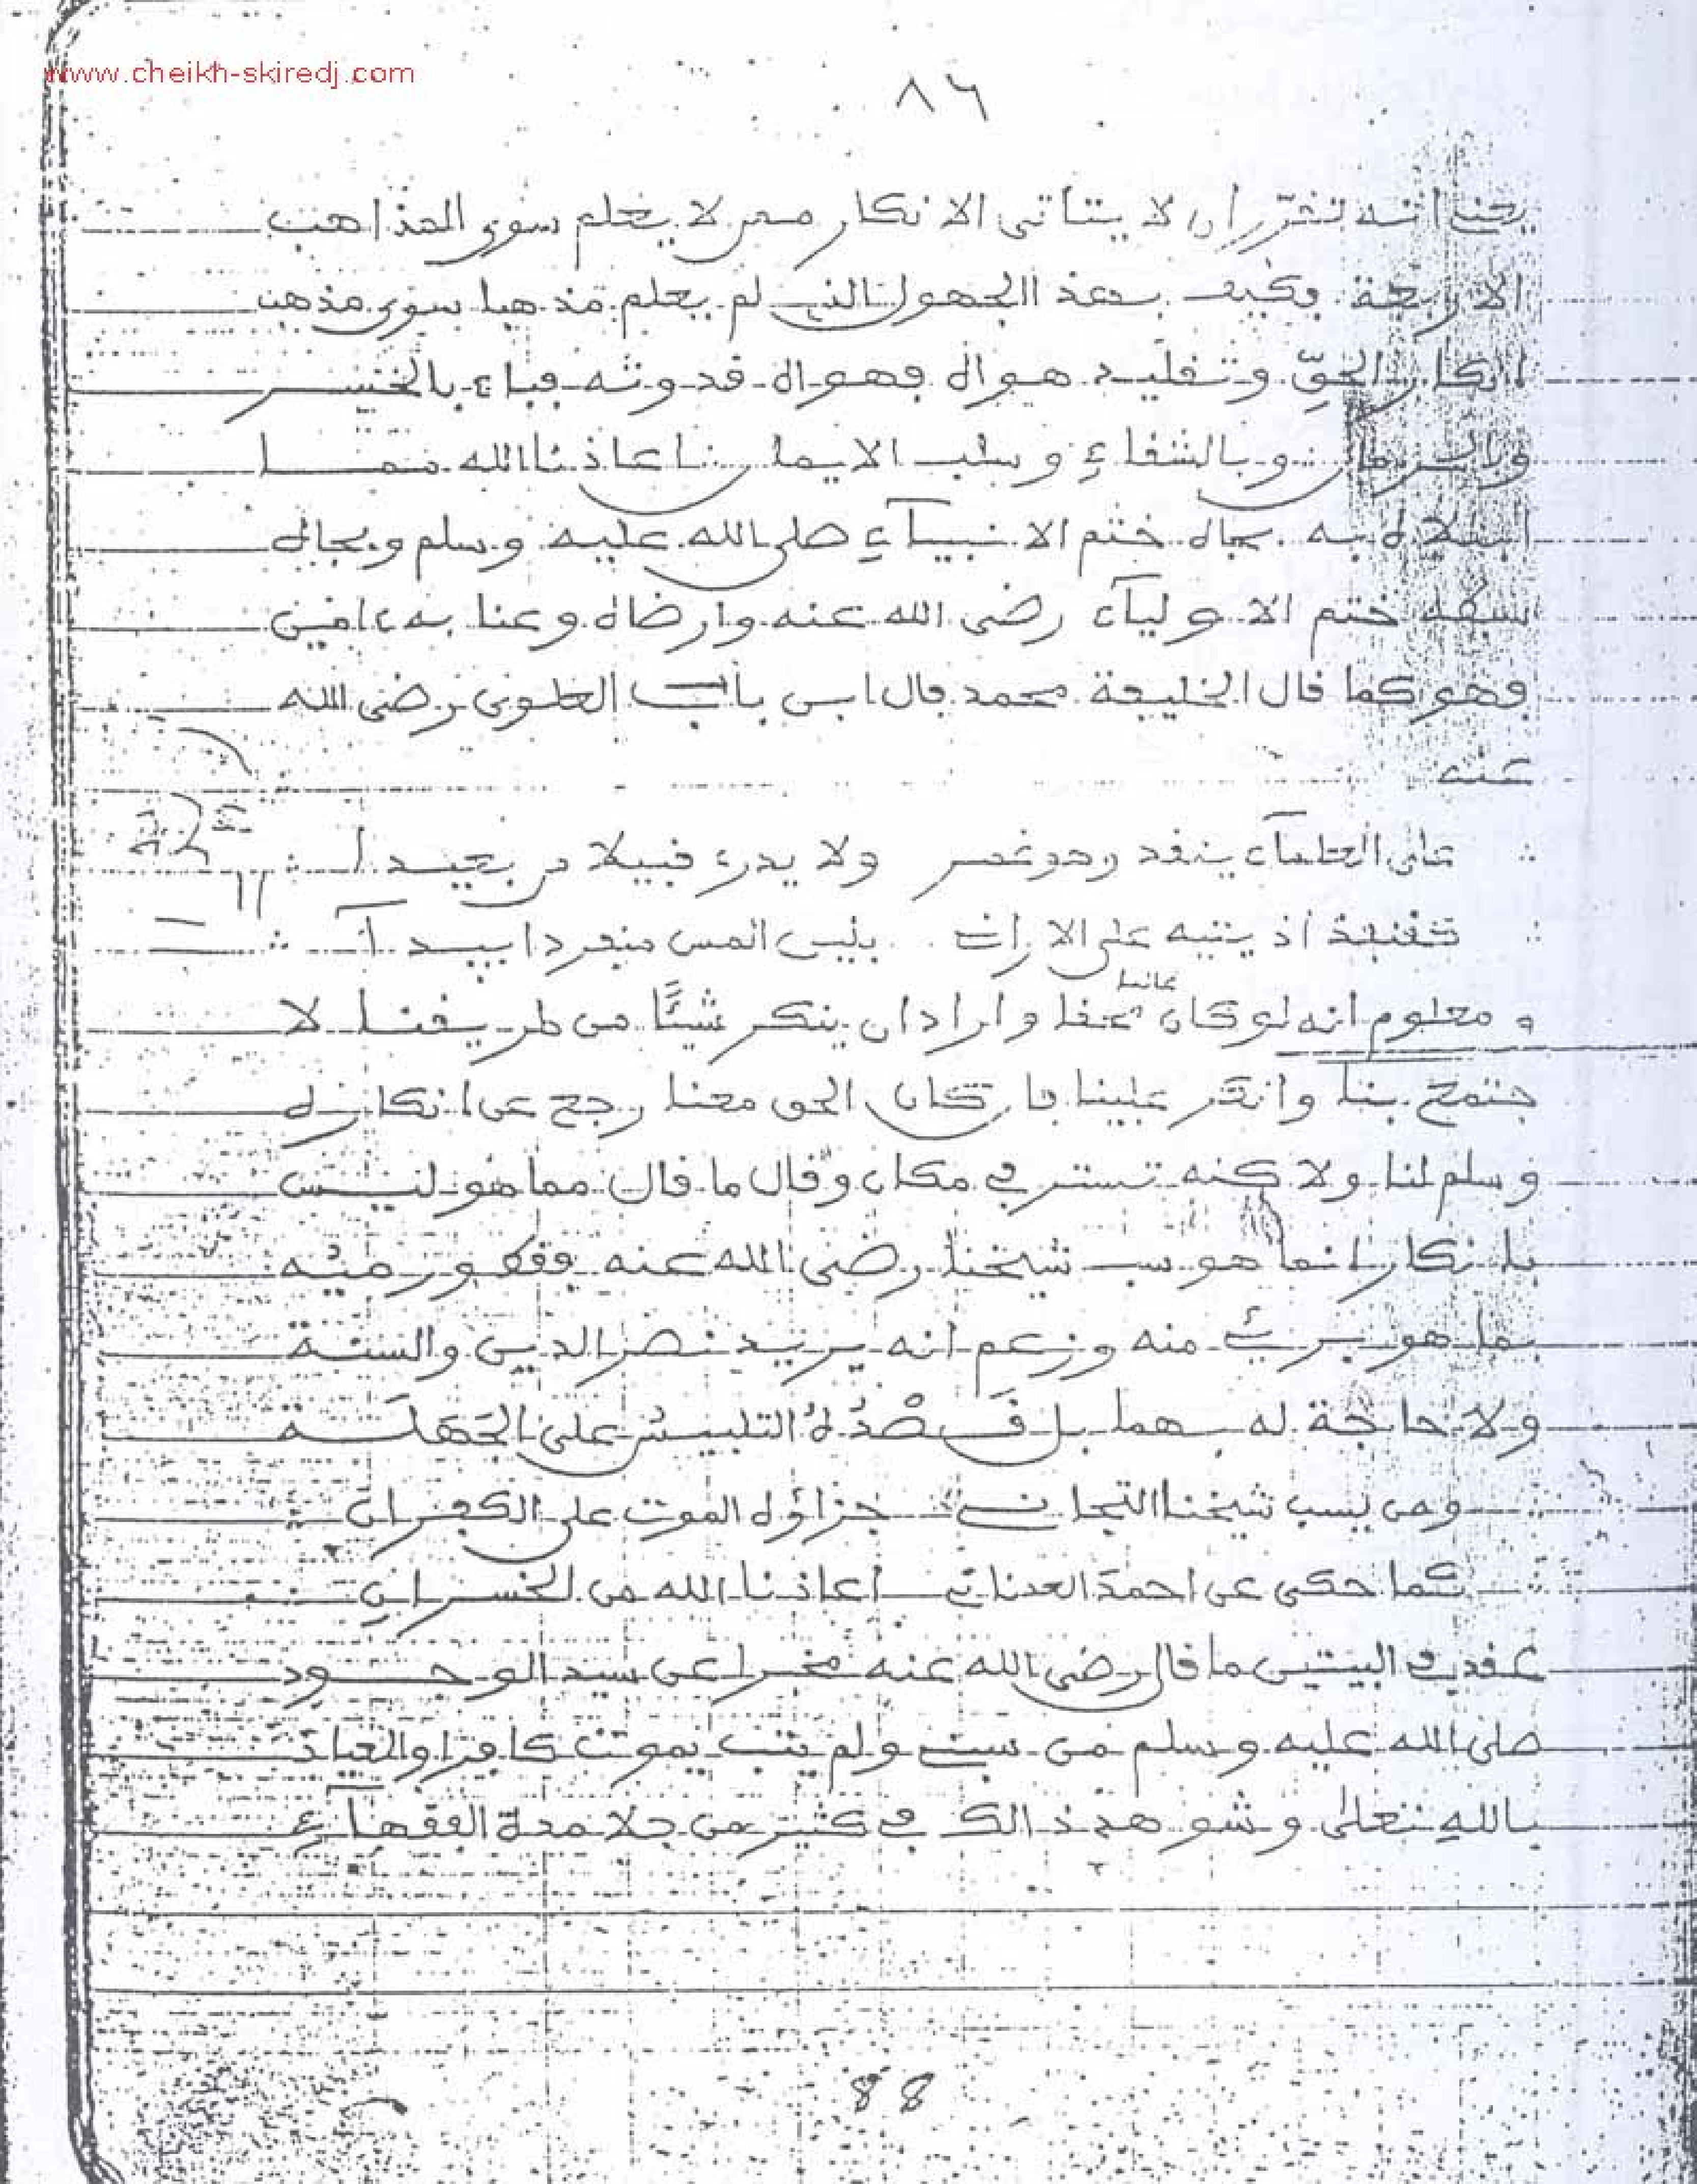 www.cheikh-skiredj.com
٨٦
يعني انه تقرّر ان لا يتاتى الانكار ممن لا يعلم سوى المذاهب
الاربعة فكيف بهذا الجهول الذي لم يعلم مذهبا سوى مذهب
انكار الحقّ وتقليد هواه فهواه قدوته فباء بالخسر
والحرمان وبالشقاء وسلب الايمان اعاذنا الله مما
ابتلاه به بجاه ختم الانبياء صلى الله عليه وسلم وبجاه
ختم الاولياء رضى الله عنه وارضاه وعنا به ءامين
فهو كما قال الخليفة محمد فال ابن باب العلوى رضى الله
عنه
على العلماء ينقد وهو غمر ولا يدرى قبيلا من بعيدا
اذ يتيه على الارات بليس المس منفردا ببيدا
ومعلوم انه لو كان محقا واراد ان ينكر شيئا من طريقتنا لا
عالما
جتمع بنا وانكر علينا فان كان الحق معنا رجع عن انكاره
وسلم لنا ولاكنه تستر في مكان وقال ما قال مما هو ليس
بانكار انما هو سب شيخنا رضى الله عنه ورميه
بما هو برئ منه وزعم انه يريد نصر الدين والسنة
ولا حاجة له بهما بل قَصْدُهُ التلبيسُ على الجَهَلَة
ومن يسب شيخنا التجاني جزاؤه الموت على الكفران
كما حكى عن احمد العدناني اعاذنا الله من الخسران
عقد في البيتين ما قال رضى الله عنه مخبرا عن سيد الوجود
صلى الله عليه وسلم من سبك ولم يتب يموت كافرا والعياذ
بالله تعلى وشوهد ذالك في كثير من جلامدة الفقهاء
88